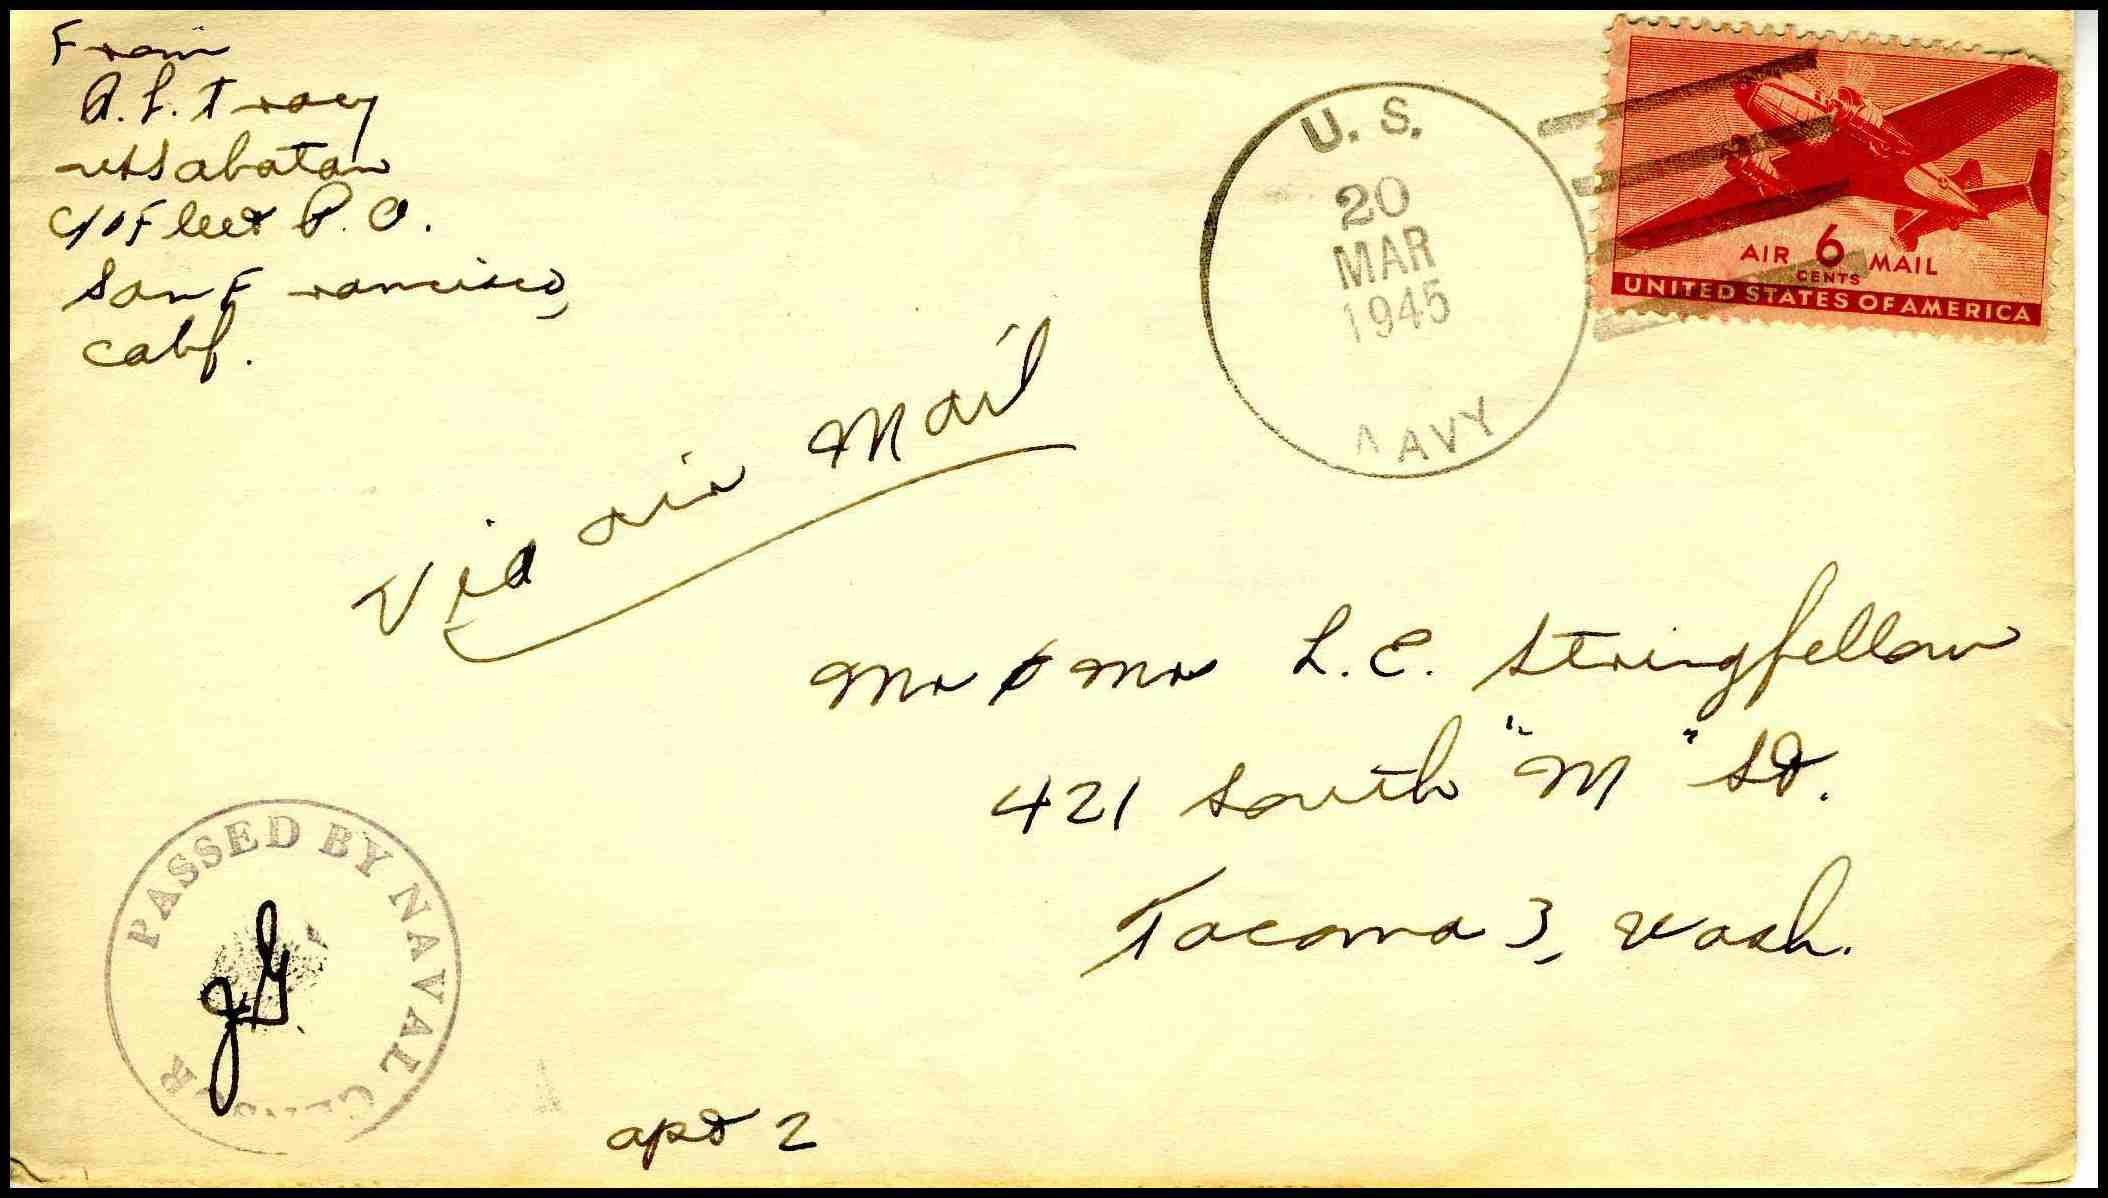 From
A. L. Tracy
USS abatan
c/o Fleet P. O.
San Francisco,
Calif.
U. S.
20
MAR
1945
NAVY
AIR 6 MAIL
CENTS
UNITED STATES OF AMERICA
Via air Mail
Mr & Mrs L. E. Stringfellow
421 South "M" St.
Tacoma 3, Wash.
PASSED BY NAVAL CENSOR
JG
apt 2